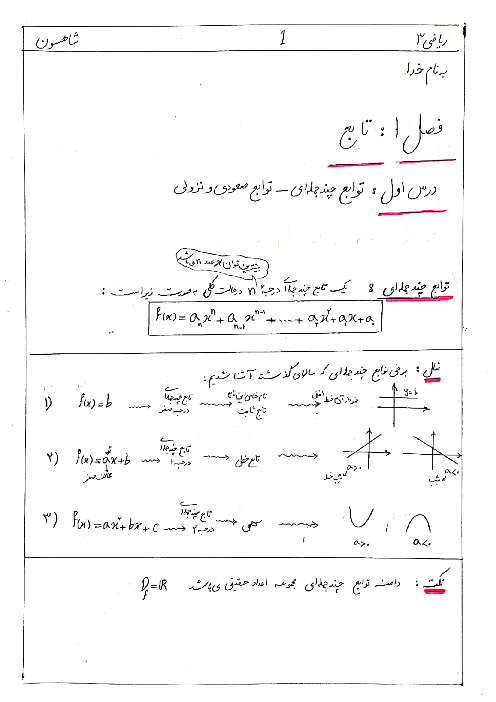 ریاضی ۳ 1 شاهسون
به نام خدا
فصل ۱ : تابع
درس اول : توابع چندجمله‌ای – توابع صعودی و نزولی
بیشترین توان x عدد n می‌باشد
توابع چندجمله‌ای : یک تابع چندجمله‌ای درجه n در حالت کلی به صورت زیر است :
f(x) = aₙxⁿ + aₙ₋₁xⁿ⁻¹ + ... + a₂x² + a₁x + a₀
مثال : برخی توابع چندجمله‌ای که سالهای گذشته آشنا شدیم :
۱) f(x) = b تابع چندجمله‌ای درجه صفر نام خاص این تابع تابع ثابت نمودارش خط افقی y=b
۲) f(x) = ax + b مخالف صفر تابع چندجمله‌ای درجه ۱ تابع خطی a>0 شیب خط a<0 شیب
۳) f(x) = ax² + bx + c تابع چندجمله‌ای درجه ۲ سهمی a>0 , a<0
نکته : دامنه توابع چندجمله‌ای مجموعه اعداد حقیقی می‌باشد D_f = ℝ